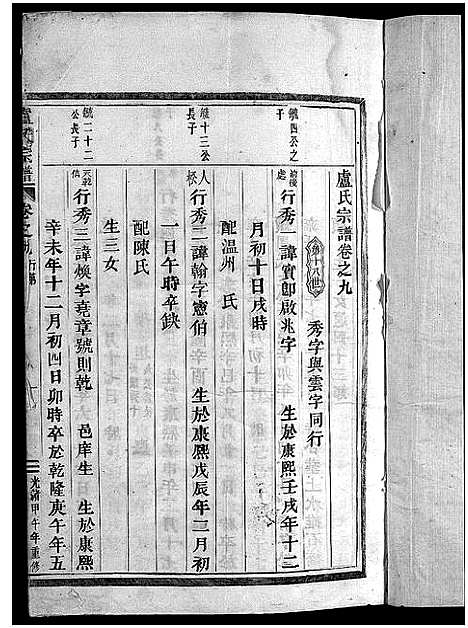 盧氏宗譜卷之九
第十八世
秀字與雲字同行
鏡四公之子
行秀一諱實卽啟兆字 生於康熙壬戌年十二
月初十日戌時
配温州 氏
鏡十三公長子
行秀二諱翰字憲伯 生於康熙戊辰年二月初
一日午時卒缺
配陳氏
生三女
鏡二十二公長子
行秀三諱煥字堯章號則乾 邑庠生 生於康熙
辛未年十二月初四日卯時卒於乾隆庚午年五
宗譜
卷之九
行第
光緒甲午年重修